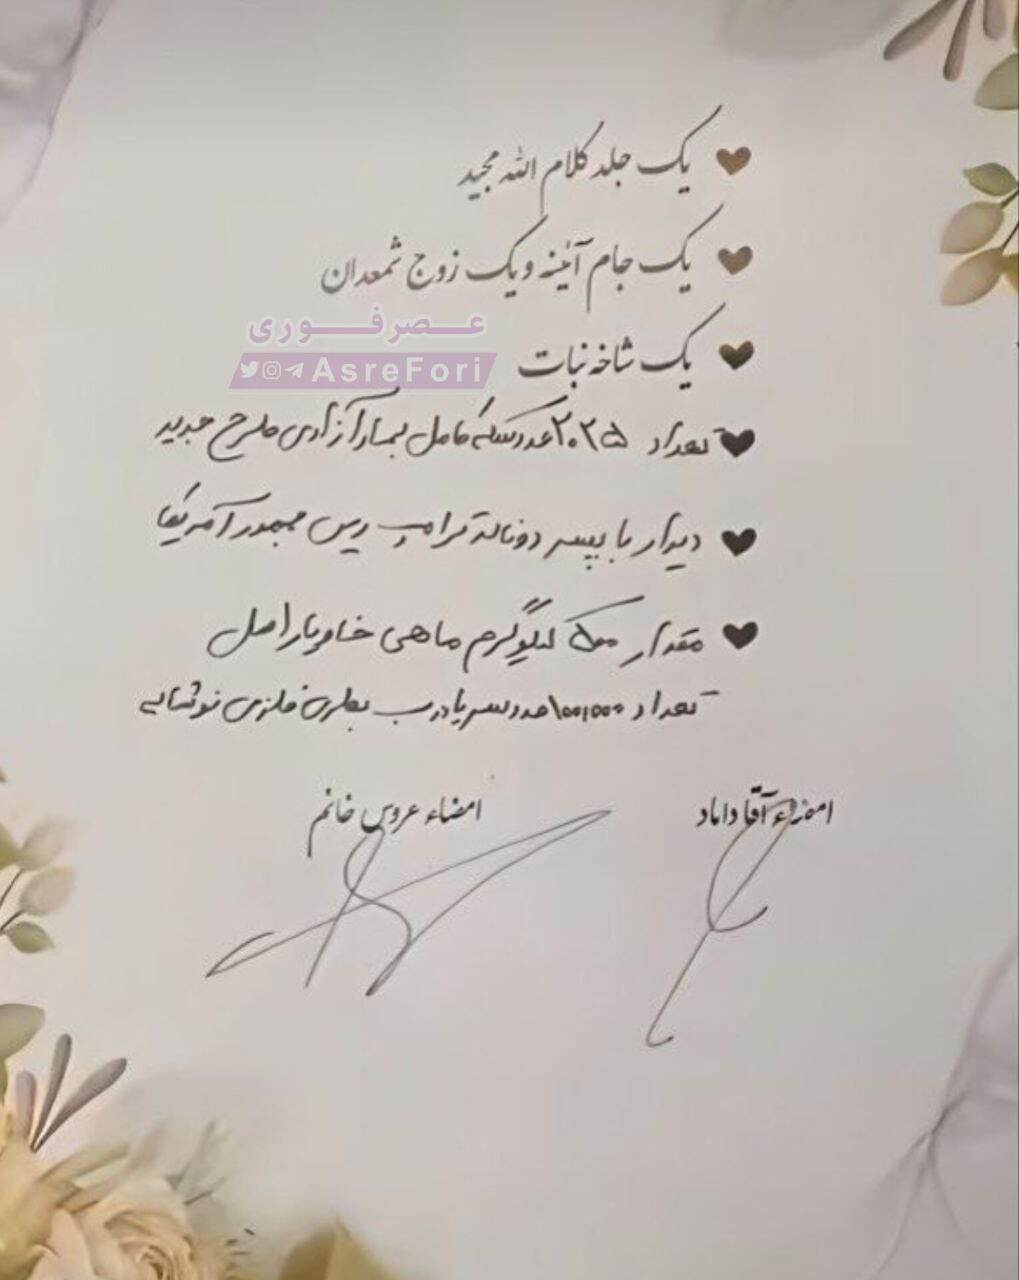 یک جلد کلام الله مجید
یک جام آئینه و یک زوج شمعدان
عصر فوری
AsreFori
یک شاخه نبات
تعداد ۲۰۲۵ عدد سکه کامل بهار آزادی طرح جدید
دیدار با پسر دونالد ترامپ رییس جمهور آمریکا
مقدار ۵۰۰ کیلوگرم ماهی خاویار اصل
تعداد عدد سر یا درب بطری فلزی نوشابه
امضاء آقا داماد
امضاء عروس خانم